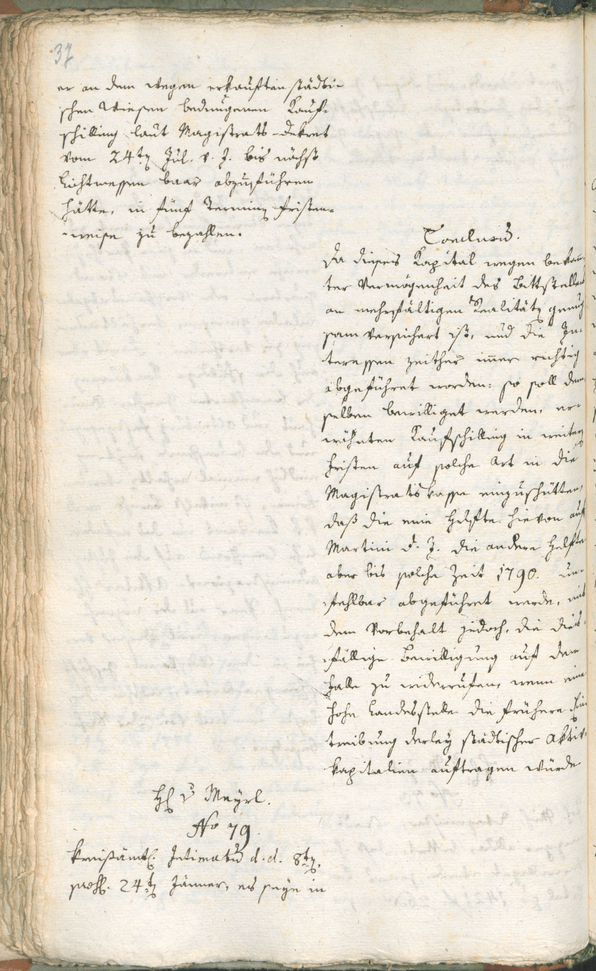 37
er an dem wegen erkauften städti-
schen Wiesen bedungenen Kauf-
schilling laut Magistrats-Dekret
vom 24ten Jul. v. J. bis nächst
Lichtmessen baar abzuführen
hätte, in fünf Termin fristen-
weise zu bezahlen.
Conclusum.
Da dieses Kapital wegen bekan-
ter Vermögenheit des Bittstellers
an mehrfältigen Realitäten genug-
sam versichert ist, und die In-
teressen zeither immer richtig
abgeführet worden; so soll dem
selben bewilliget werden, er-
wähnten Kaufschilling in weitern
Fristen auf solche Art in die
Magistratskasse einzuschütten,
daß die eine Helfte hievon auf
Martini d. J. die andere Helfte
aber bis solche Zeit 1790. un-
fehlbar abgeführet werde, mit
dem Vorbehalt jedoch, die dies-
fällige Bewilligung auf dem
Falle zu widerrufen, wenn eine
hohe Landesstelle die frühere Ein-
treibung derley städtischer Aktiv-
kapitalien auftragen würde
H. v. Mayrl.
No 79.
Kreisämtl. Intimatum d. d. 8ten,
24ten Jänner, es seye in